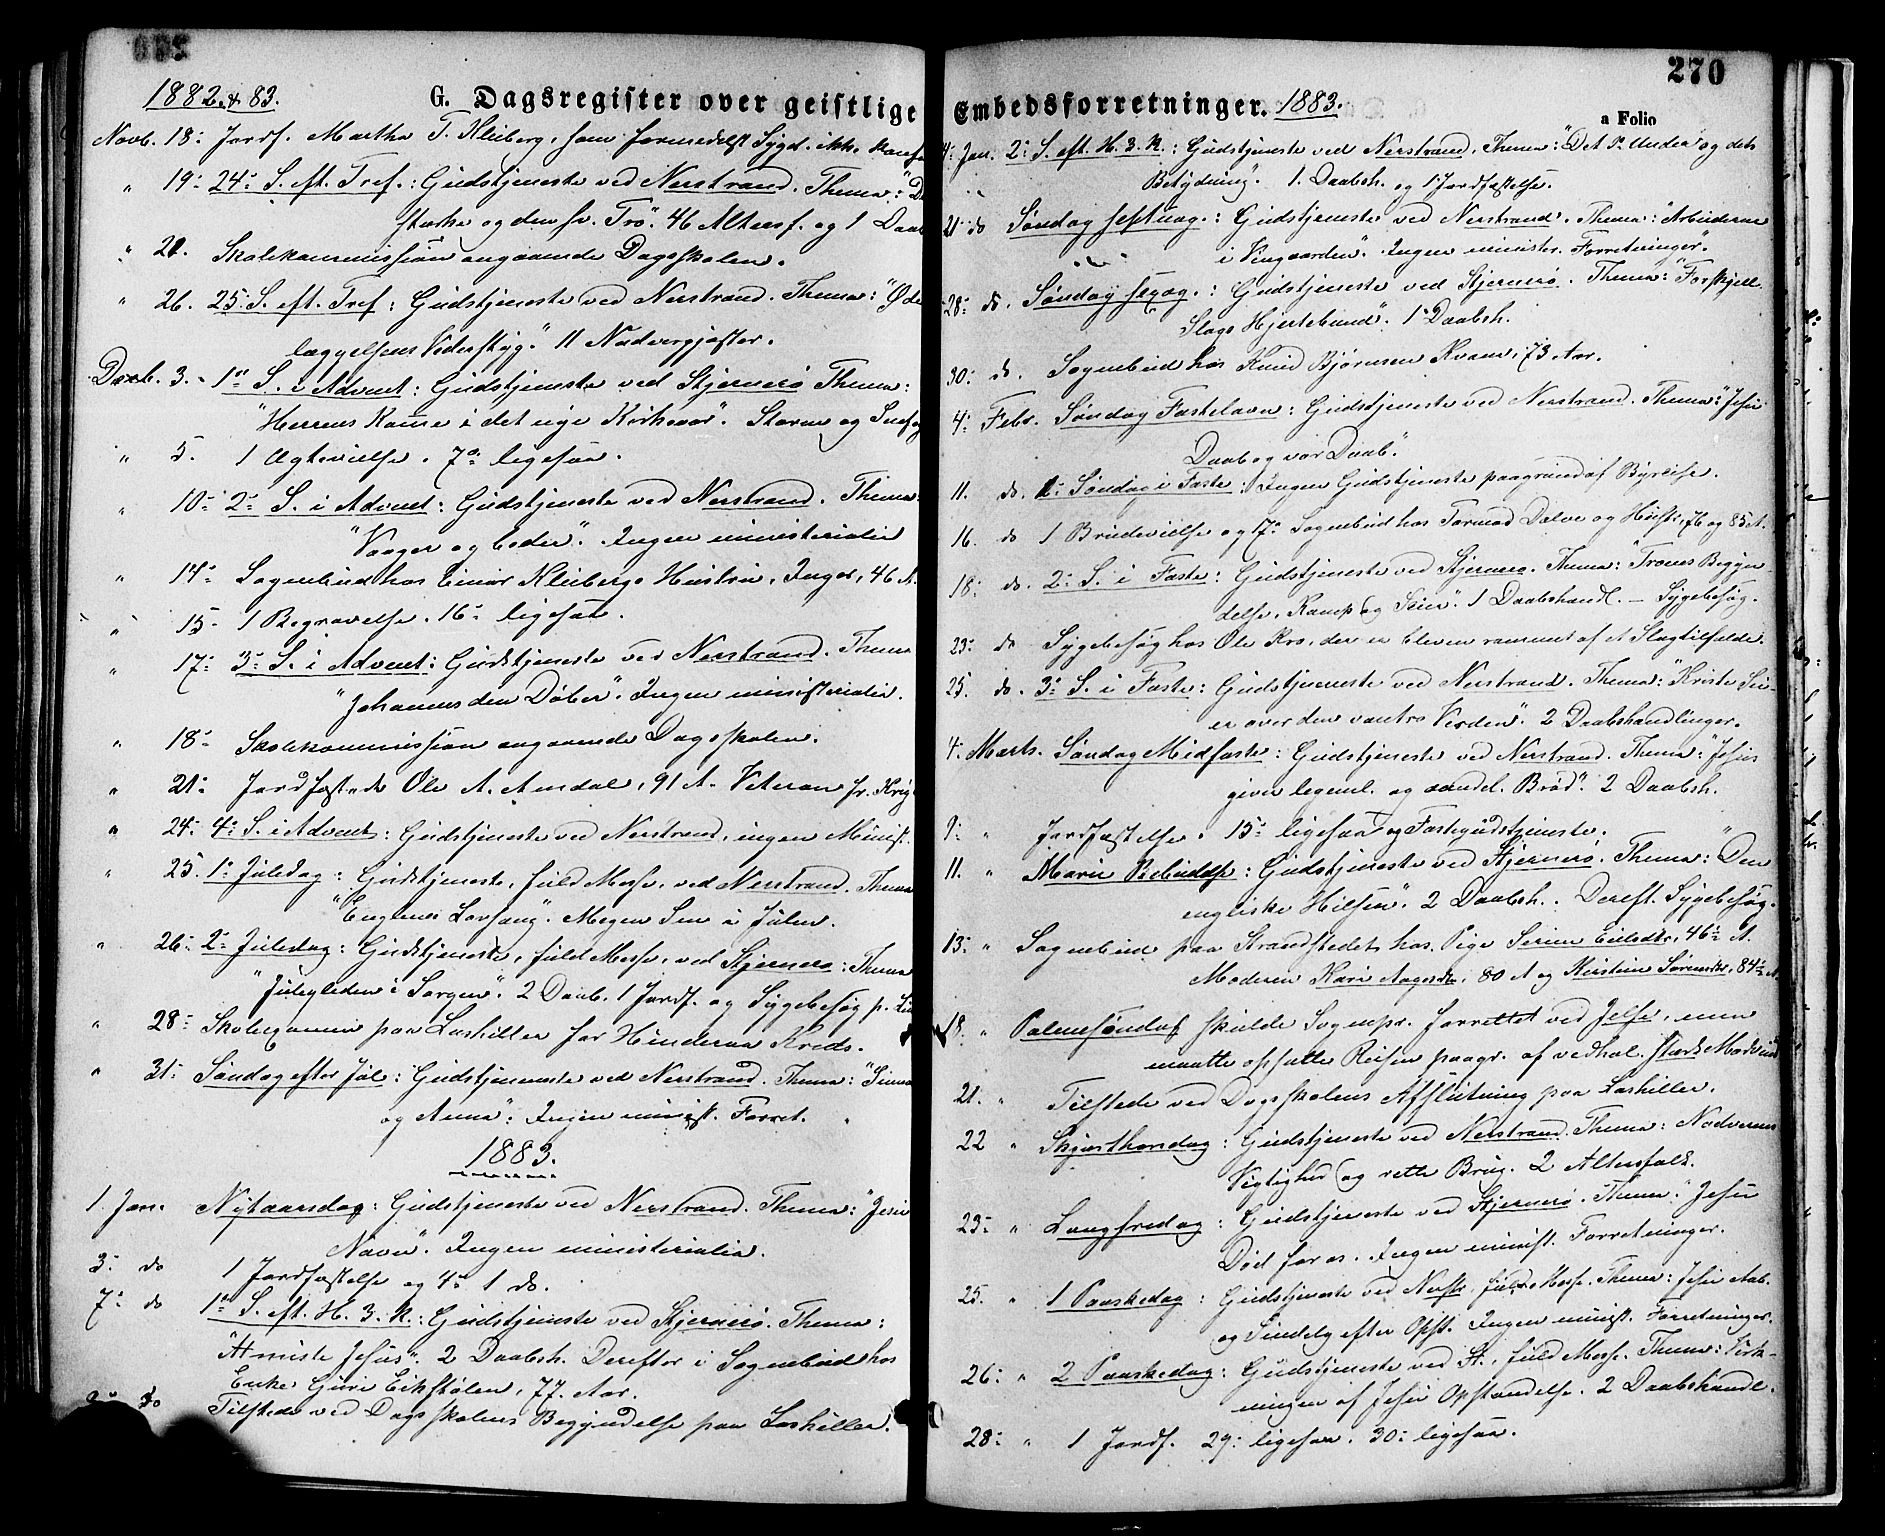 1882 & 83.
G. Dagsregister over geistlige
Novb. 18: Jordf. Martha T. Kleiberg, som formedelst Sygd. ikke
" 19: 24: S. eft. Tref.: Gudstjeneste ved Nerstrand. Thema:
stærke og den sv. Tro". 46 Altersf. og 1 Daab
" 21. Skolekommission angaaende Dagsskolen.
" 26. 25: S. eft. Tref: Gudstjeneste ved Nerstrand. Thema: "Øde-
læggelsens Vederstyg." 11 Nadvergjæster.
Decb. 3. 1ste S. i Advent: Gudstjeneste ved Stjernerø Thema:
"Herrens Komme i det nye Kirkeaar". Storm og
" 5. 1 Ægtevielse. 7de ligesaa.
" 10: 2: S. i Advent: Gudstjeneste ved Nerstrand. Thema:
"Vaager og beder". Ingen ministerialia
" 14: Sognebud hos Einar Kleibergs Hustru, Inger, 46 A.
" 15: 1 Begravelse. 16: ligesaa.
" 17: 3: S. i Advent: Gudstjeneste ved Nerstrand. Thema
"Johannes den Døber". Ingen ministerialia.
" 18: Skolekommission angaaende Dagsskolen.
" 21: Jordfæstede Ole A. Amdal, 91 A. Veteran fr. Krig
" 24: 4: S. i Advent: Gudstjeneste ved Nerstrand, ingen Minist.
" 25. 1: Juledag: Gudstjeneste, fuld Messe, ved Nerstrand. Thema
"Englenes Lovsang". Megen Sne i Julen.
" 26: 2: Juledag: Gudstjeneste, fuld Messe, ved Stjernerø: Thema
"Juleglæden i Sorgen". 2 Daab. 1 Jordf. og Sygebesøg p.
" 28: Skoleexamen paa Loshiller for Hinderaa Kreds.
" 31: Søndag efter Jul: Gudstjeneste ved Nerstrand. Thema: "Simeon
og Anna": Ingen minist. Forret.
1883.
1. Jan. Nytaarsdag: Gudstjeneste ved Nerstrand. Thema: "Jesu
Navn". Ingen ministerialia.
3: do 1 Jordfæstelse og 4: 1 do.
7: do 1ste S. eft. H. 3. K.: Gudstjeneste ved Stjernerø. Thema:
"At miste Jesus". 2 Daabsh. Derefter i Sognebud hos
Enke Guri Eikstølen, 77 Aar.
do Tilstede ved Dagsskolens Begyndelse paa Loshiller.
270
Embedsforretninger. 1883.
a Folio
14: Jan. 2: S. eft. H. 3. K.: Gudstjeneste ved Nerstrand. Thema: "Det 1ste Under og dets
Betydning". 1. Daabsh. og 1 Jordfæstelse.
21 do Søndag septuag.: Gudstjeneste ved Nerstrand. Thema: "Arbeiderne
i Vingaarden". Ingen minister. Forretninger.
28: do. Søndag sexag.: Gudstjeneste ved Stjernerø. Thema: "Forskjell.
Slags Hjertebund". 1 Daabsh.
30: do. Sognebud hos Knud Bjørnsen Kvam, 73 Aar.
4: Febr. Søndag Fastelavn: Gudstjeneste ved Nerstrand. Thema: "Jesu
Daab og vor Daab."
11. do. 1: Søndag i Faste: Ingen Gudstjeneste paagrund af Byreise.
16. do 1 Brudevielse og 17: Sognebud hos Tormod Dalve og Hustr. 76 og 85 A.
18: do. 2: S. i Faste: Gudstjeneste ved Stjernerø. Thema: "Troens Begyn-
delse, Kamp og Seier". 1 Daabshandl. — Sygebesøg.
23: do Sygebesøg hos Ole Kro, der er bleven rammet af et Slagtilfælde.
25. do. 3: S. i Faste: Gudstjeneste ved Nerstrand. Thema: "Kristi Sei-
er over den vantro Verden". 2 Daabshandlinger.
4. Marts. Søndag Midfaste: Gudstjeneste ved Nerstrand. Thema: "Jesus
giver legeml. og aandel. Brød". 2 Daabsh.
9: " Jordfæstelse. 15: ligesaa og Fastegudstjeneste.
11. " Mariæ Bebudelse: Gudstjeneste ved Stjernerø. Thema: "Den
engelske Hilsen". 2 Daabsh. Dereft. Sygebesøg.
13: " Sognebud paa Strandstedet hos Pige Serine Eilsdtr, 46½ A.
Moderen Kari Aagesdtr, 80 A og Kirstine Sørensdtr, 84½ A.
18. " Palmesøndag skulde Sognepr. forrettet ved Jelse, men
maatte opsætte Reisen paagr. af vedhol. stærk Modvind
21. " Tilstede ved Dagsskolens Afslutning paa Loshiller.
22 " Skjærthorsdag: Gudstjeneste ved Nerstrand. Thema: Nadverens
Vigtighed og rette Brug. 2 Altersfolk.
23: " Langfredag: Gudstjeneste ved Stjernerø. Thema: "Jesu
Død for os. Ingen minist. Forretninger.
25. " 1 Paaskedag: Gudstjeneste ved Nerstr. fuld Messe. Thema: Jesu Aab.
og Sendelg efter Opst. Ingen minist. Forretninger.
26: " 2 Paaskedag: Gudstjeneste ved St., fuld Messe. Thema: Virk-
ningen af Jesu Opstandelse. 2 Daabshandl.
28: " 1 Jordf. 29: ligesaa. 30: ligesaa.